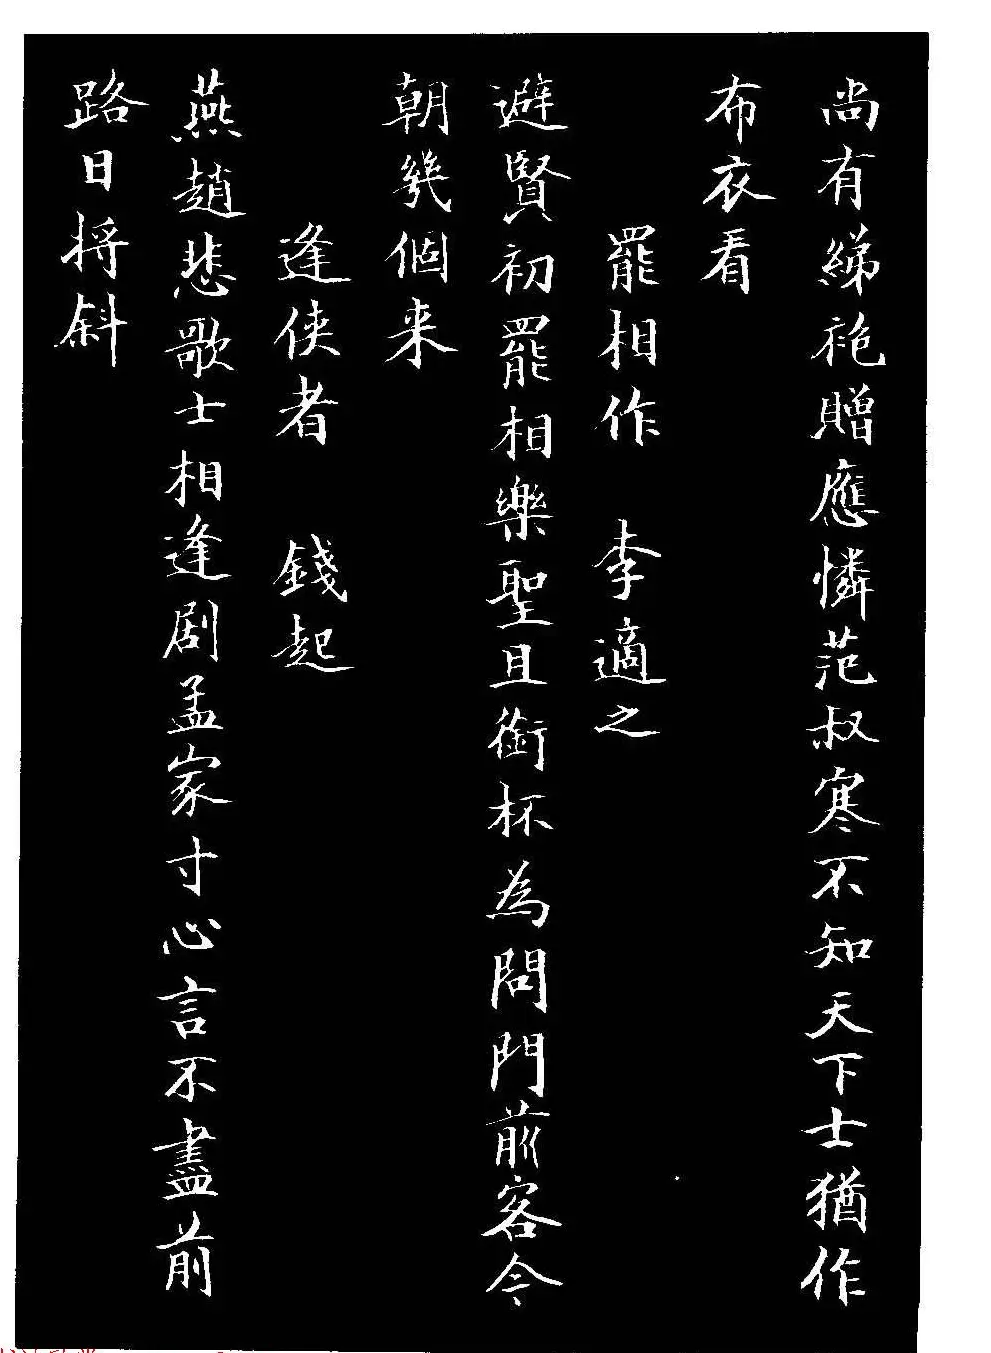 尚有綈袍贈應憐范叔寒不知天下士猶作
布衣看
罷相作 李適之
避賢初罷相樂聖且銜杯為問門前客今
朝幾個来
逢俠者 錢起
燕趙悲歌士相逢劇孟家寸心言不盡前
路日将斜